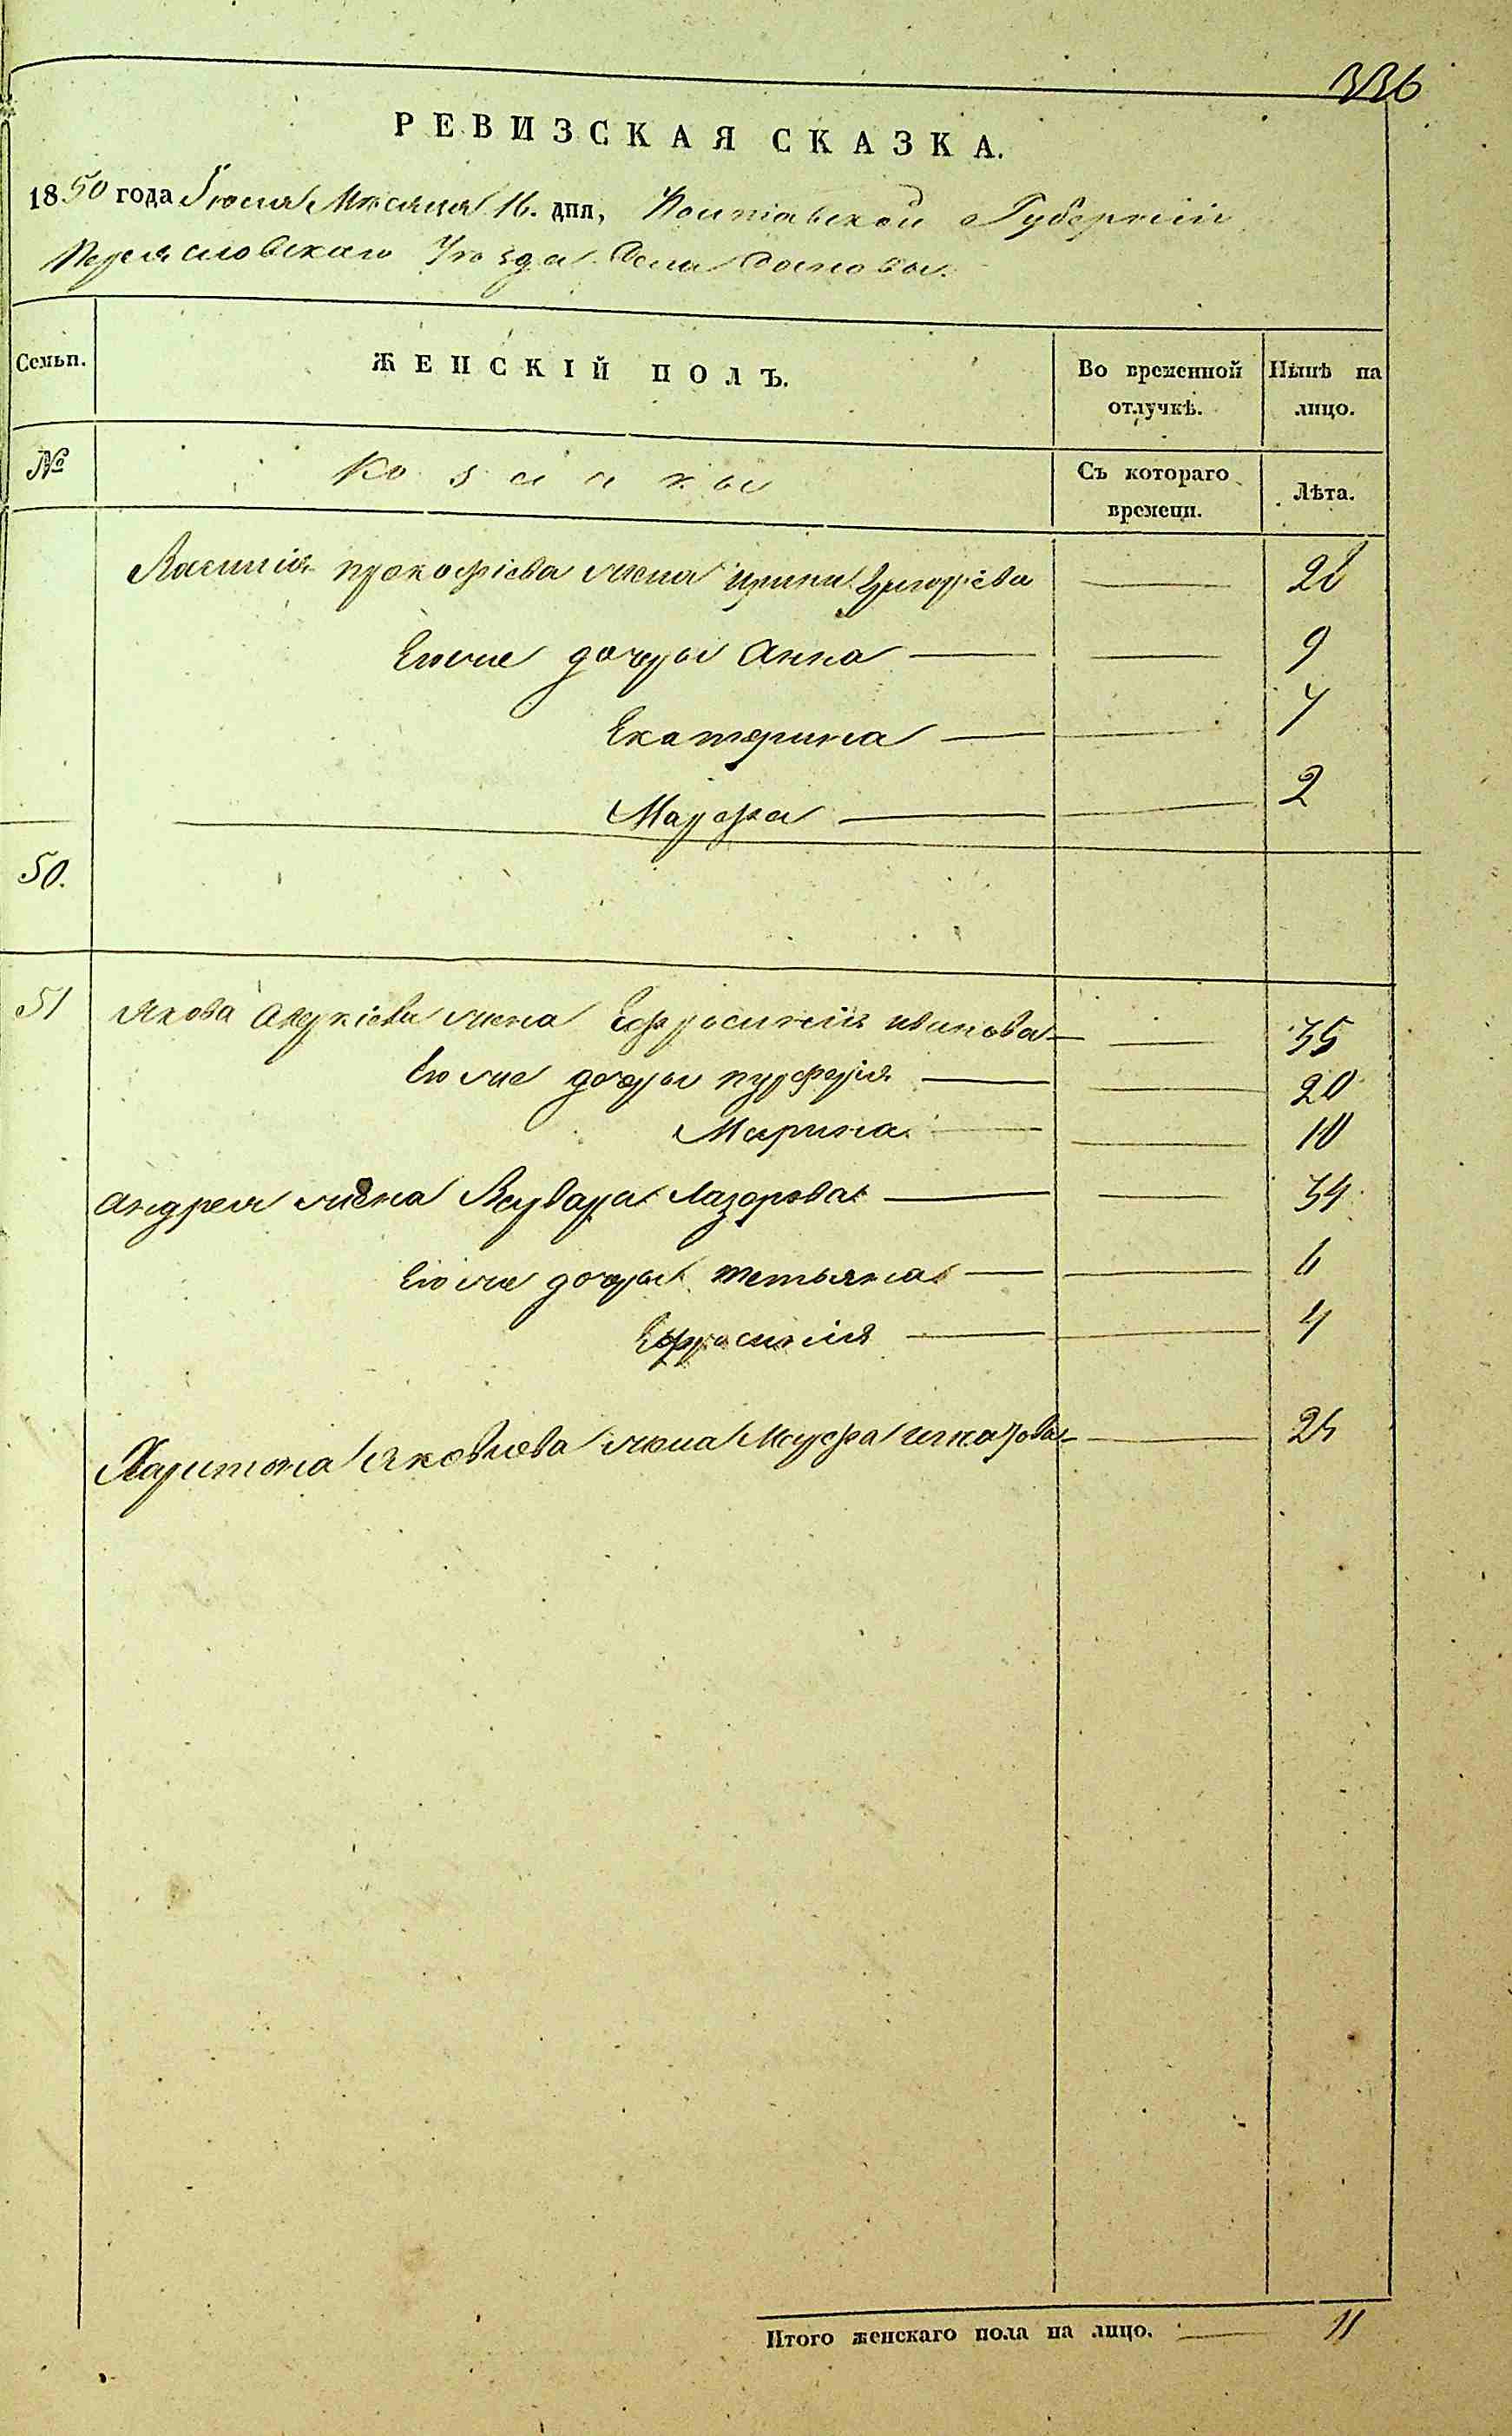 336
РЕВИЗСКАЯ СКАЗКА.
1850 года Іюля Мѣсяца 16. дня, Полтавской Губерніи
Переясловскаго Уѣзда Села
Семьи.
ЖЕНСКІЙ ПОЛЪ.
Во временной отлучкѣ.
Нынѣ на лицо.
№
Козачки
Съ котораго времени.
Лѣта.
Василія прокофіева жена ирина григоріева — 28
Егоже дочеры Анна — — 9
Екатерина — — 7
Марфа — — 2
50.
51 Якова жена Ефросинія иванова — — 35
Егоже дочеры — — 20
Марина — — 10
андрея жена Варвара Лазорова — — 34
Егоже дочеры тетьяна — — 6
Ефросинія — — 4
Харитона яковлева жена Марфа — —
Итого женскаго пола на лицо. — 11